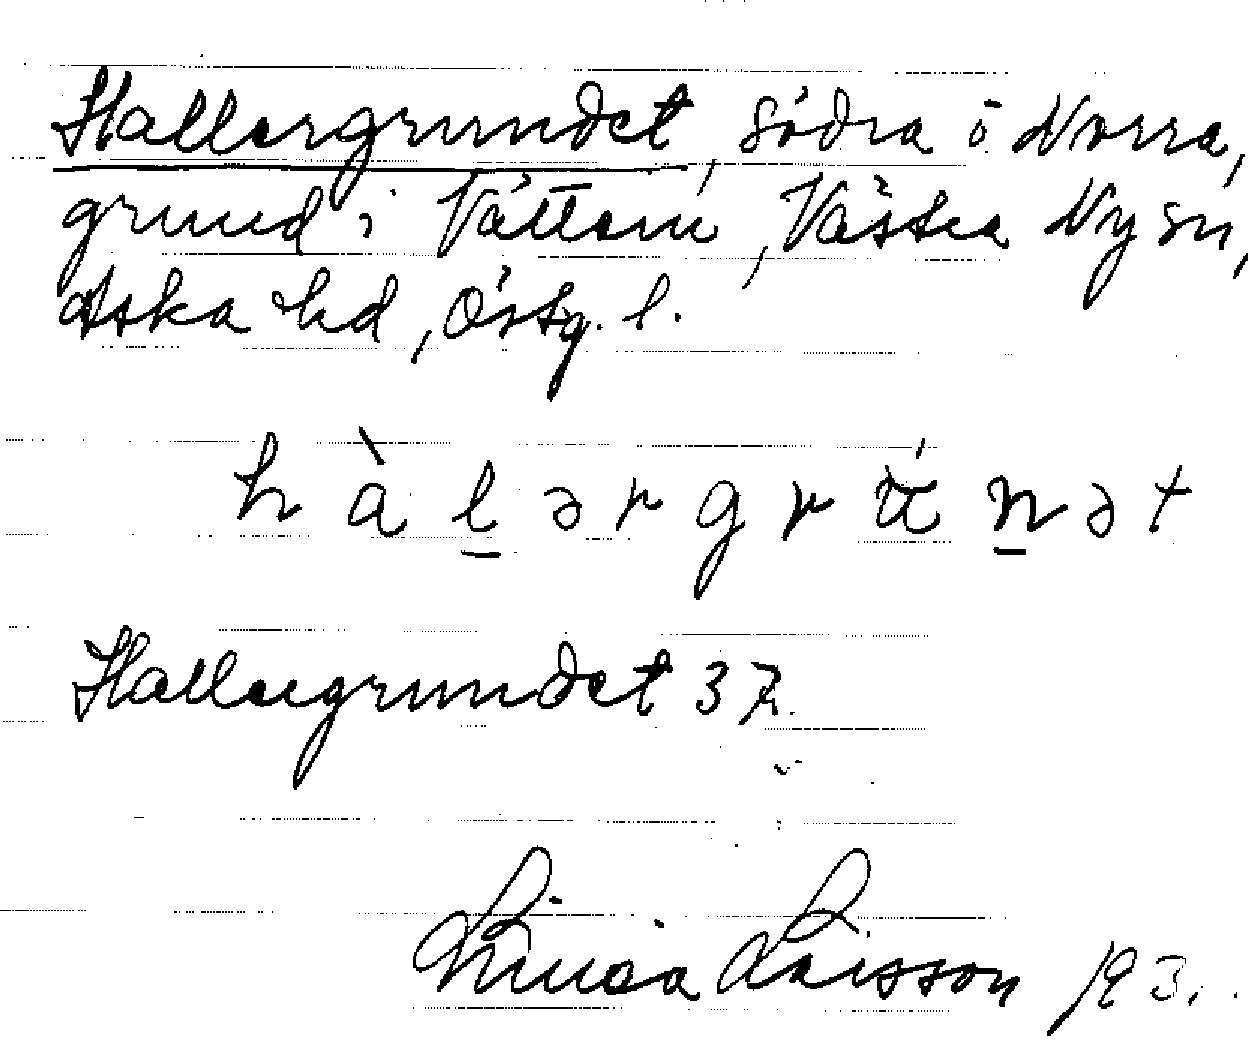 Hallergrundet, södra o Norra,
grund i Vättern, Västra Ny sn,
Aska hd, Östg. l.
h à l ə r g r ú n ə t
Hallergrundet 37.
Linnéa Larsson 193.